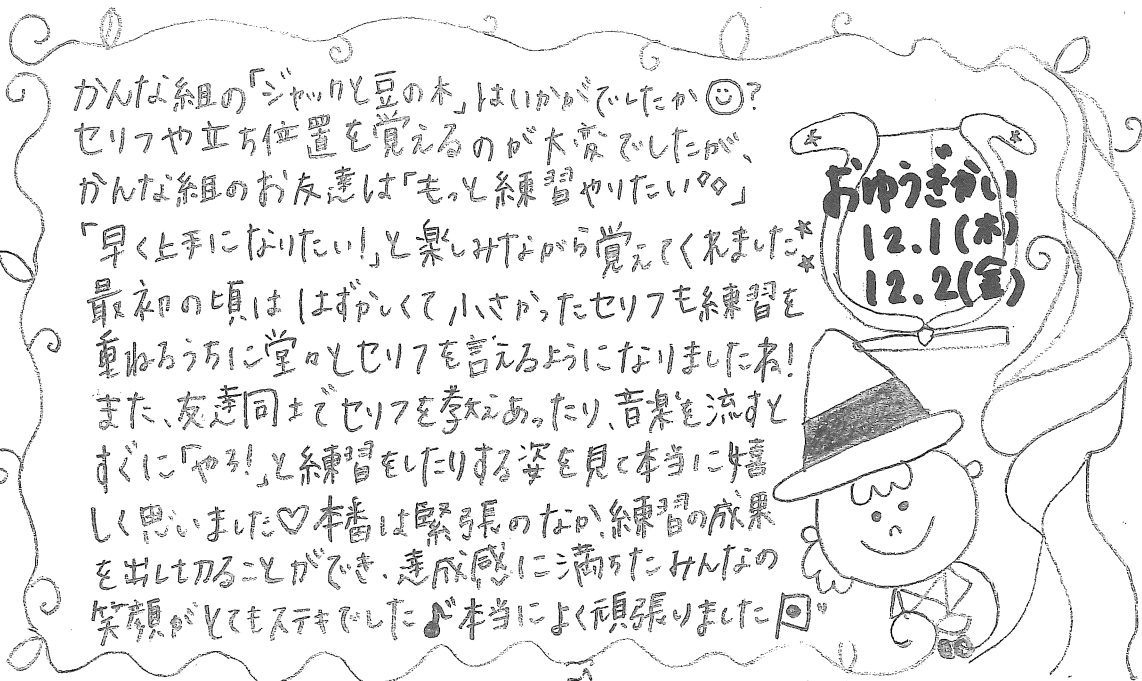 かんな組の「ジャックと豆の木」はいかがでしたか☺?
セリフや立ち位置を覚えるのが大変でしたが、
かんな組のお友達は「もっと練習やりたい!!」
「早く上手になりたい!」と楽しみながら覚えてくれました
最初の頃ははずかしくて小さかったセリフも練習を
重ねるうちに堂々とセリフを言えるようになりましたね!
また、友達同士でセリフを教えあったり、音楽を流すと
すぐに「やろ!」と練習をしたりする姿を見て本当に嬉
しく思いました♡本番は緊張のなか、練習の成果
を出し切ることができ、達成感に満ちたみんなの
笑顔がとてもステキでした♪本当によく頑張りました
おゆうぎかい
12.1(木)
12.2(金)